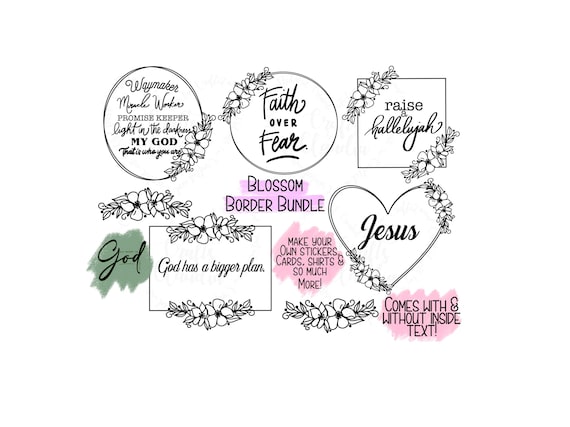 Waymaker
Miracle Worker
PROMISE KEEPER
light in the darkness
MY GOD
That is who you are
Faith
OVER
Fear.
raise
a
hallelujah
BLOSSOM
BORDER BUNDLE
God
God has a bigger plan.
MAKE YOUR
OWN STICKERS,
CARDS, SHIRTS &
SO MUCH
MORE!
Jesus
COMES WITH &
WITHOUT INSIDE
TEXT!